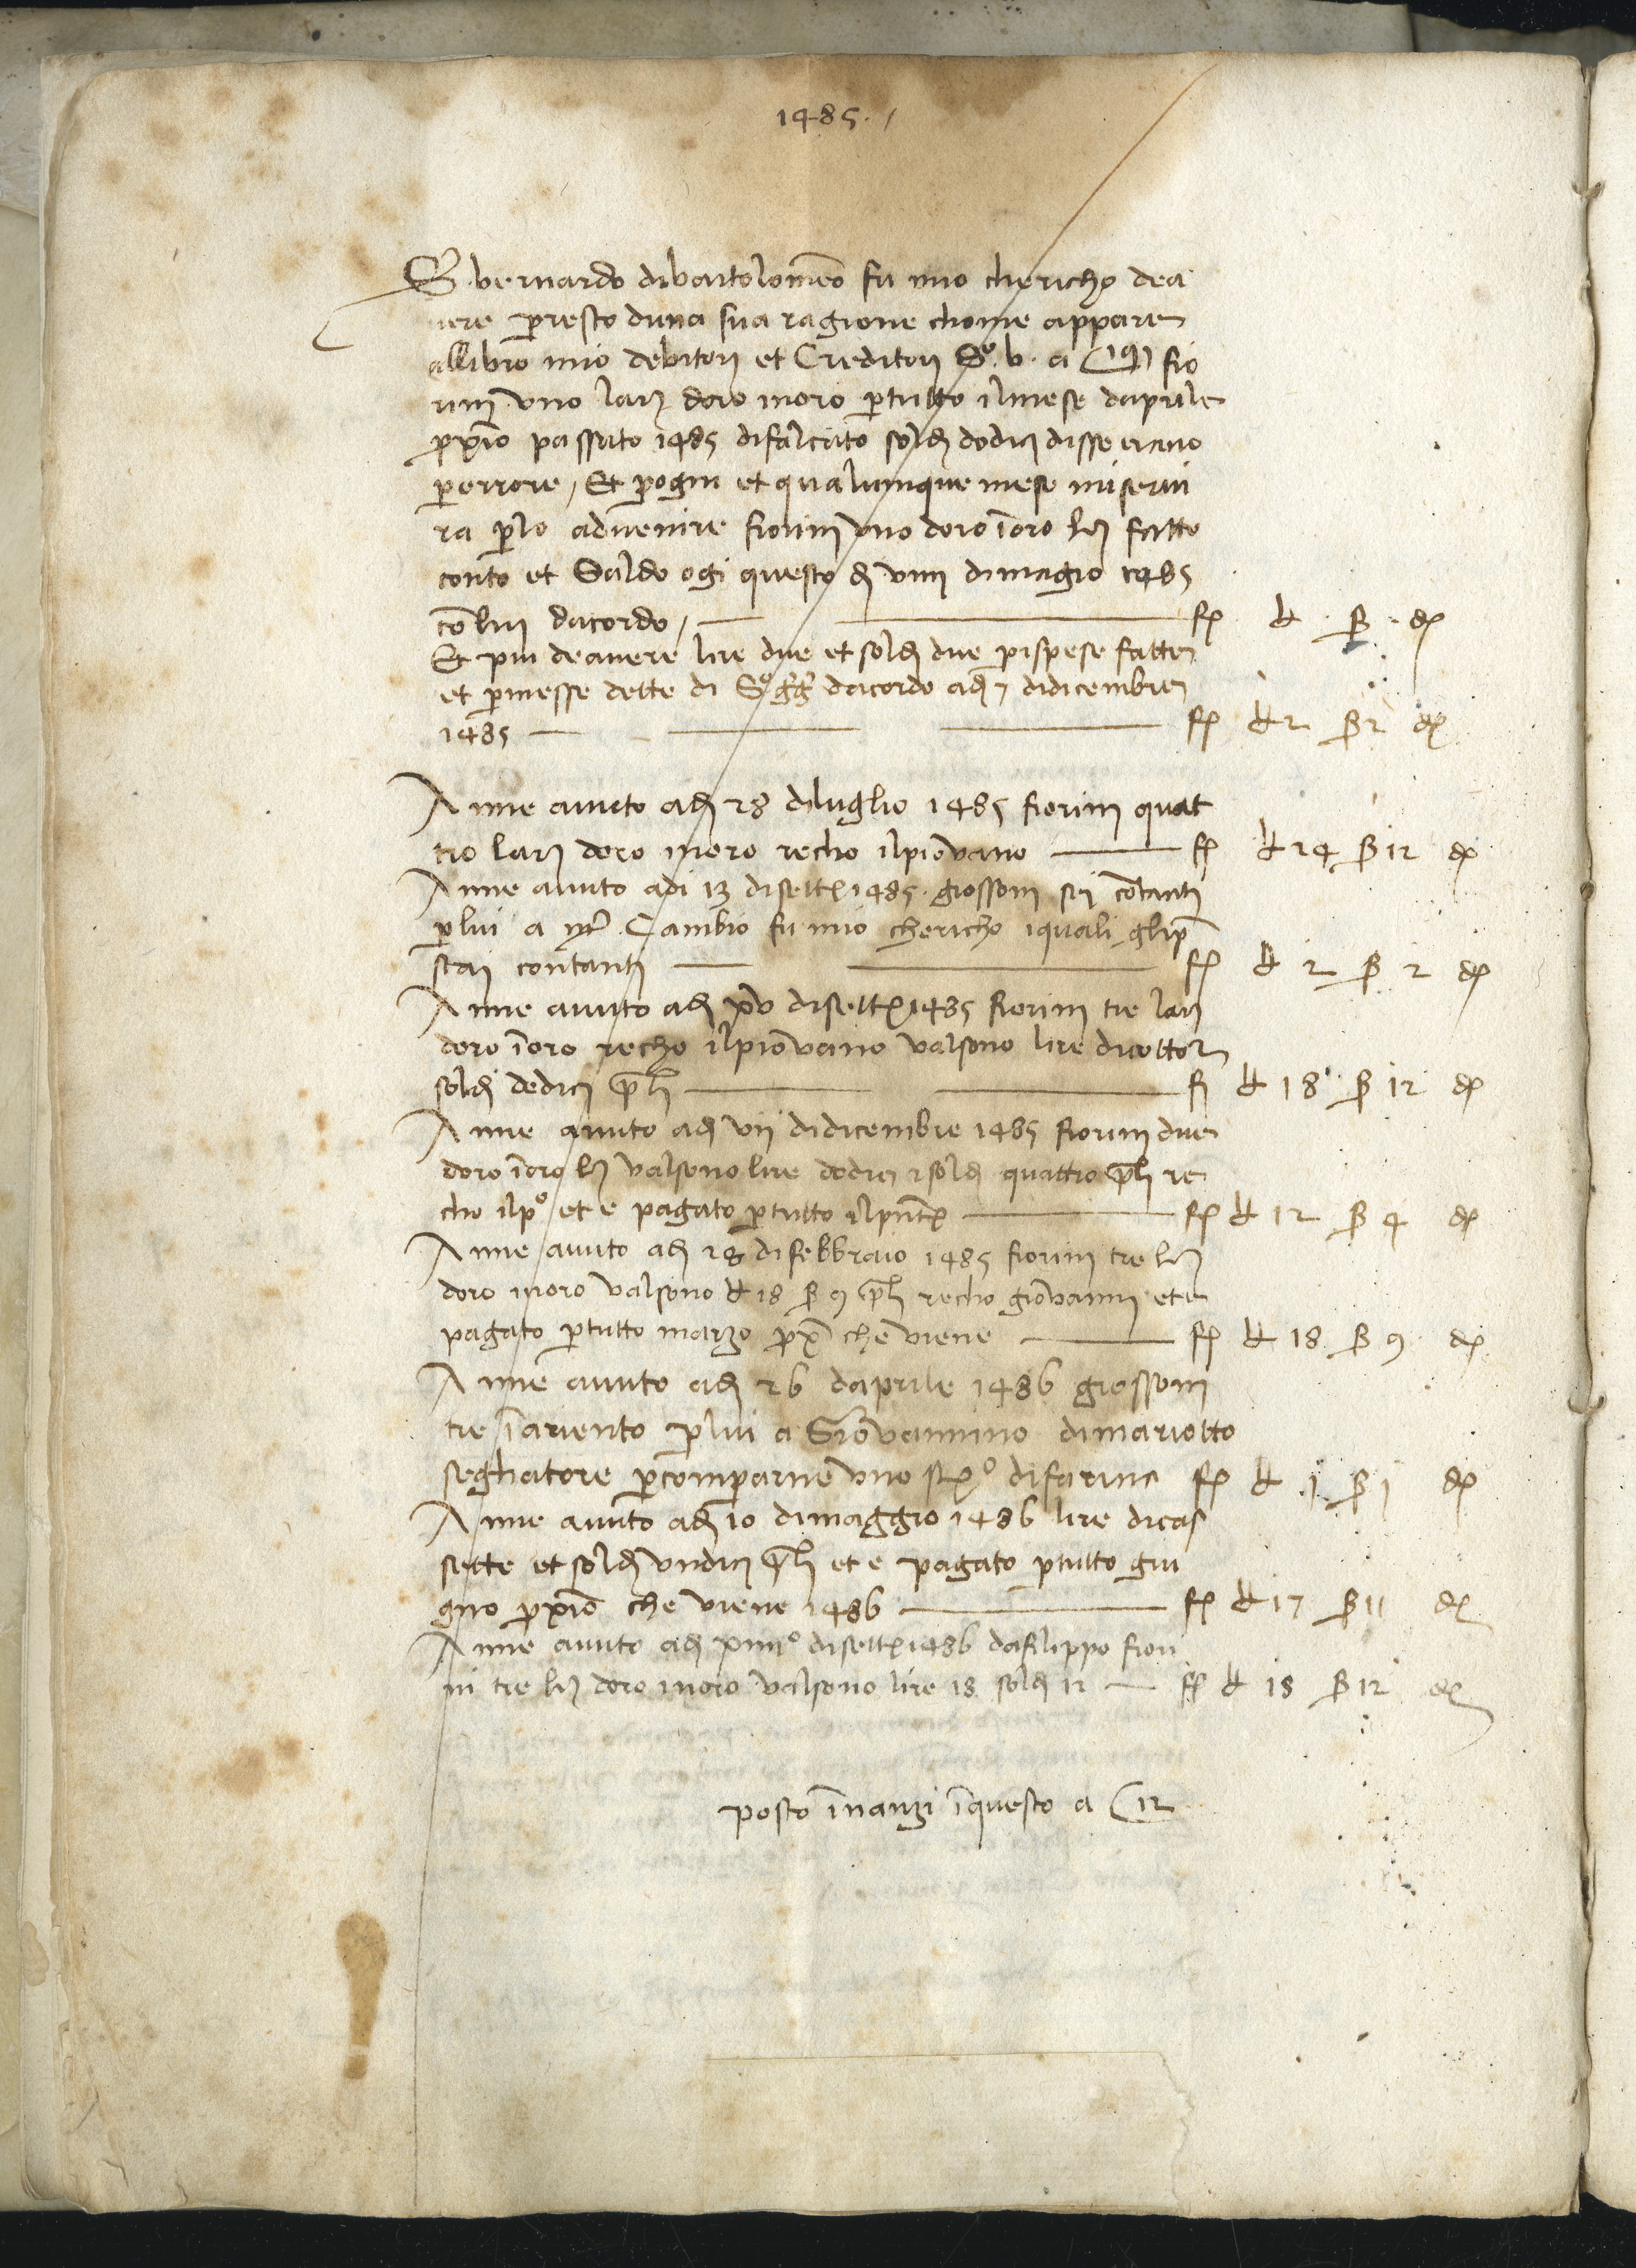 1485
S. bernardo dibartolomeo fu mio chericho dea
vere p resto duna sua ragione chome appare
allibro mio debitori et Creditori Sº. b. a fio
rini uno lar doro inoro ptutto ilmese daprile
pxio passato 1485 difalcato sold dodici disse erano
perrore, Et pogni et qualunque mese miservi
ra plo advenire fiorini uno doro ioro fatto
conto et Saldo ogi questo di viiii dimagio 1485
co lui dacordo, f £ ß d
Et piu deavere lire due et sold due pispese fatte
et pmesse dette di Sº gg dacordo adi 7 didicembre
1485 f £ 2 ß 2 d
Anne avuto adi 28 diluglio 1485 fiorini quat
tro lar doro inoro recho ilpiovano f £ 24 ß 12 d
Anne avuto adi 13 disett 1485. grossoni sei contanti
plui a Cambio fu mio chericho iquali glip
stai contanti f £ 2 ß 2 d
Anne avuto adi xv disett 1485 fiorini tre lar
doro ioro recho ilpiovano valsono lire diciotto
sold dodici f £ 18 ß 12 d
Anne avuto adi vii didicembre 1485 fiorini due
doro ioro valsono lire dodici sold quattro re
cho ilpº et e pagato ptutto ilpnte f £ 12 ß 4 d
Anne avuto adi 28 difebbraio 1485 fiorini tre
doro inoro valsono £ 18 ß 9 recho giovanni et e
pagato ptutto marzo px che viene f £ 18 ß 9 d
Anne avuto adi 26 daprile 1486 grossoni
tre iariento plui a Giovannino dimariotto
seghatore pcomparne uno stº difarina f £ 1 ß 1 d
Anne avuto adi 10 dimaggio 1486 lire dicas
sette et sold undici et e pagato ptutto giu
gno pxio che viene 1486 f £ 17 ß 11 d
Anne avuto adi xiiiiº disett 1486 dafilippo fiori
ni tre doro inoro valsono lire 18 sold 12 f £ 18 ß 12 d
posto inanzi iquesto a C 12